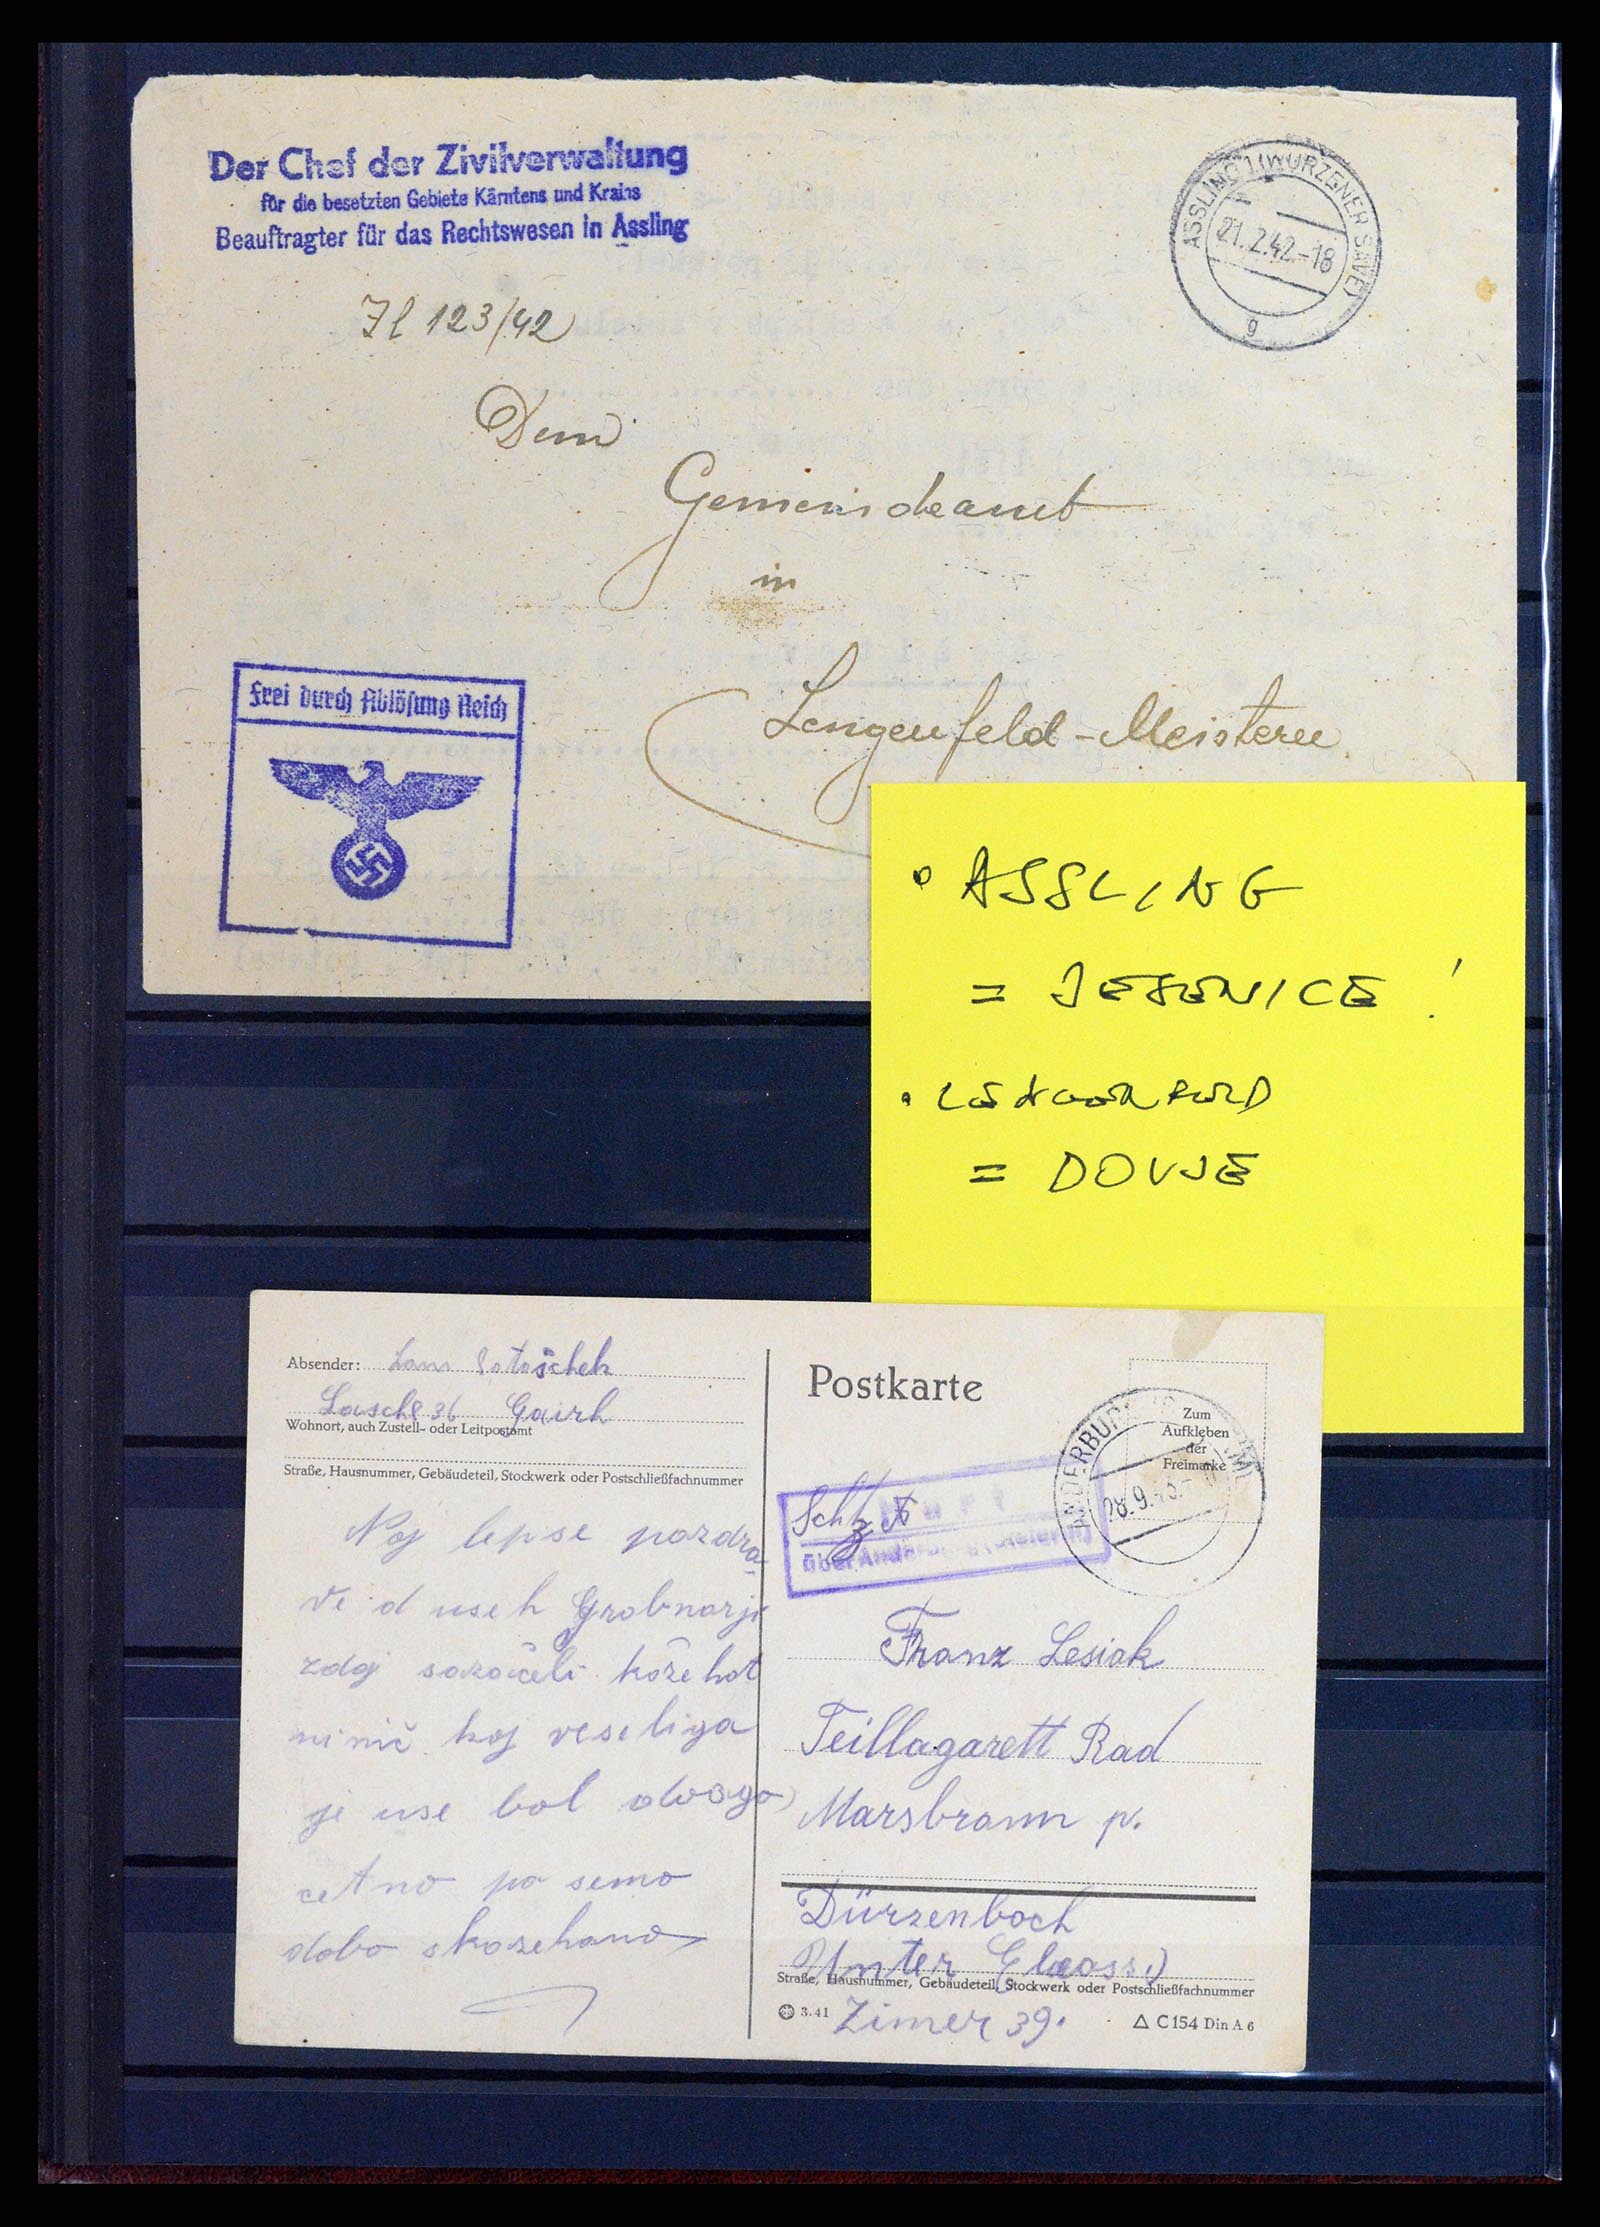 Der Chef der Zivilverwaltung
für die besetzten Gebiete Kärntens und Krains
Beauftragter für das Rechtswesen in Assling
ASSLING 1 (WURZENER SAVE)
21.2.42.-18
g
123/42
Dem
Gemeindeamt
in
Lengenfeld-Meistern
Frei durch Ablösung Reich
• ASSLING
= JESENICE !
• LENGENFELD
= DOVJE
Absender:
Lasche 36 Gairh
Wohnort, auch Zustell- oder Leitpostamt
Straße, Hausnummer, Gebäudeteil, Stockwerk oder Postschließfachnummer
Noj lepse pozdra-
ve d useh Grobnarji
zdaj sozočeli kožehat
ni nič koj veseliga
je use bol
pa semo
skozehano
Postkarte
Zum
Aufkleben
der
Freimarke
28.9.43
über
Franz Lesiak
Teillagarett Rad
Marsbrann p.
Dürzenboch
(Unter Elaoss.)
Straße, Hausnummer, Gebäudeteil, Stockwerk oder Postschließfachnummer
3.41
Zimer 39.
△ C154 Din A 6